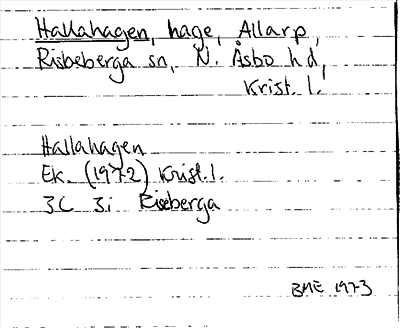 Hallahagen, hage, Allarp,
Riseberga sn, N. Åsbo hd,
Krist. l.
Hallahagen
Ek. (1972) Krist. l.
3C 3i Riseberga
BME 1973